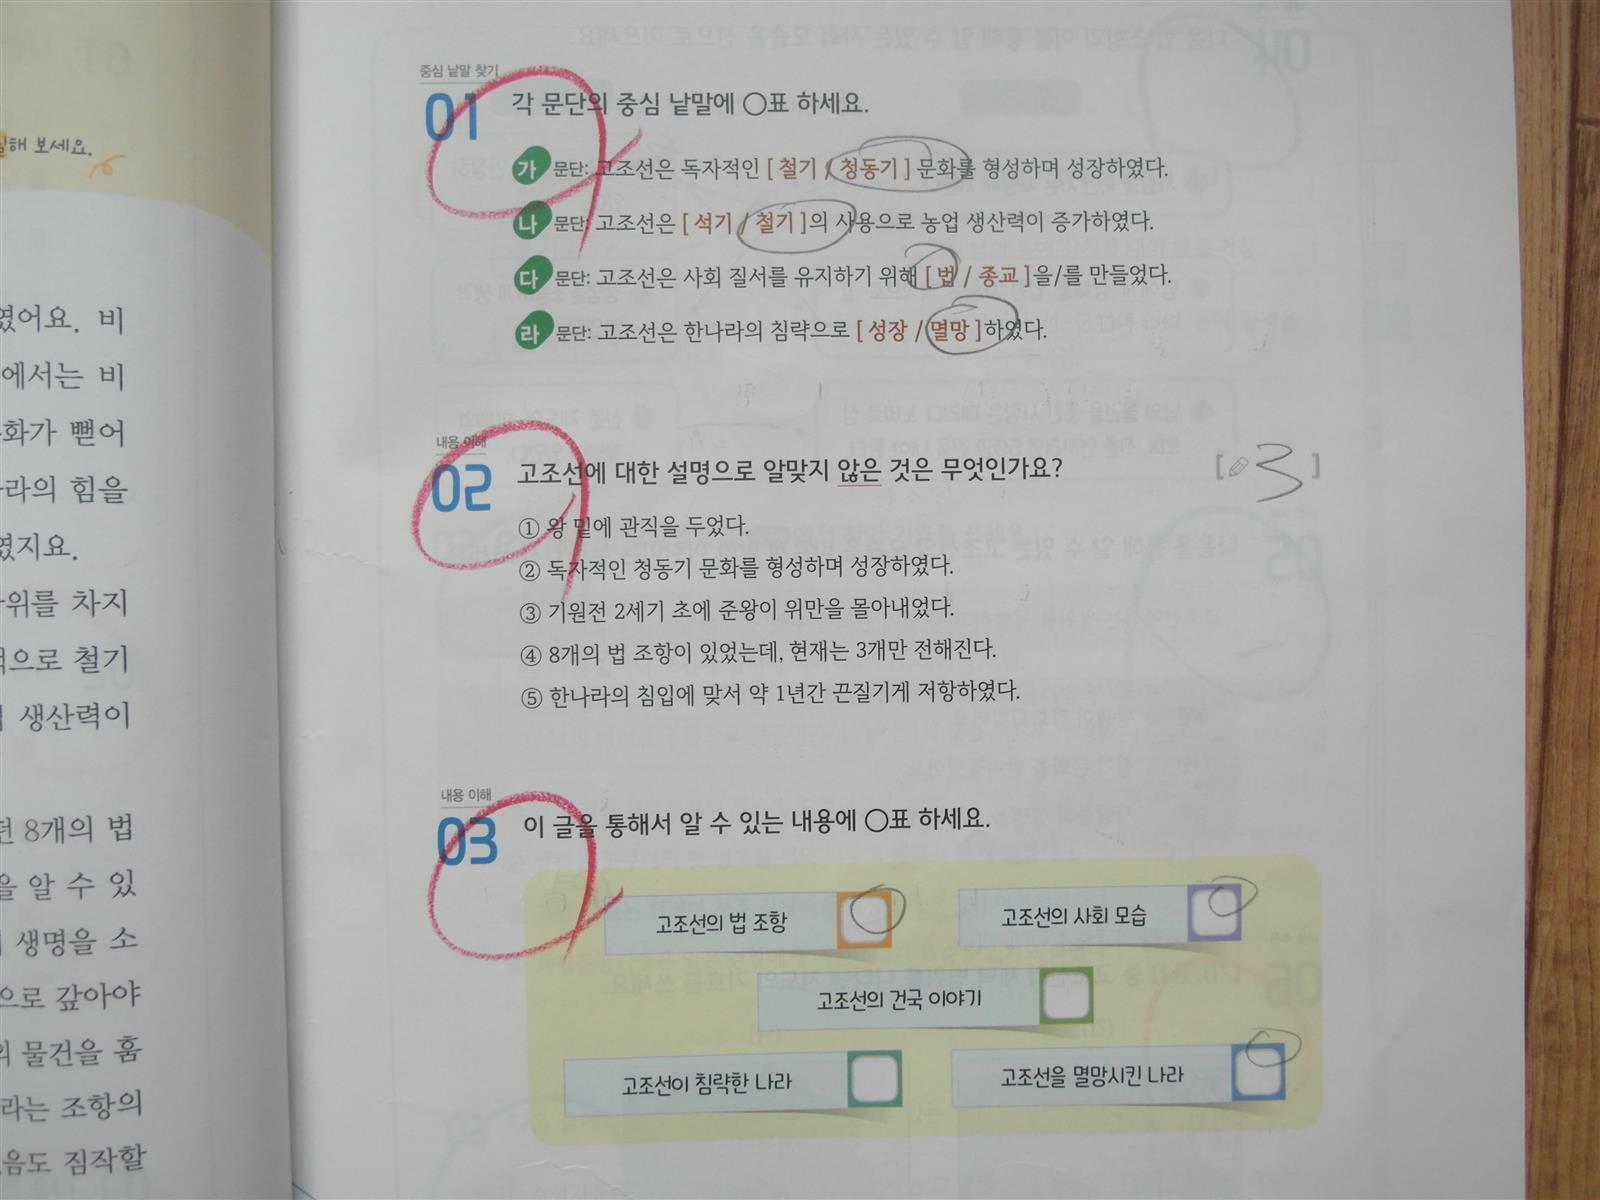 해 보세요.
였어요. 비
에서는 비
화가 뻗어
라의 힘을
였지요.
위를 차지
적으로 철기
생산력이
8개의 법
을 알 수 있
생명을 소
으로 갚아야
물건을 훔
라는 조항의
음도 짐작할
중심 낱말 찾기
01 각 문단의 중심 낱말에 ○표 하세요.
가 문단: 고조선은 독자적인 [ 철기 / 청동기 ] 문화를 형성하며 성장하였다.
나 문단: 고조선은 [ 석기 / 철기 ]의 사용으로 농업 생산력이 증가하였다.
다 문단: 고조선은 사회 질서를 유지하기 위해 [ 법 / 종교 ]을/를 만들었다.
라 문단: 고조선은 한나라의 침략으로 [ 성장 / 멸망 ]하였다.
내용 이해
02 고조선에 대한 설명으로 알맞지 않은 것은 무엇인가요? [ 3 ]
① 왕 밑에 관직을 두었다.
② 독자적인 청동기 문화를 형성하며 성장하였다.
③ 기원전 2세기 초에 준왕이 위만을 몰아내었다.
④ 8개의 법 조항이 있었는데, 현재는 3개만 전해진다.
⑤ 한나라의 침입에 맞서 약 1년간 끈질기게 저항하였다.
내용 이해
03 이 글을 통해서 알 수 있는 내용에 ○표 하세요.
고조선의 법 조항
고조선의 사회 모습
고조선의 건국 이야기
고조선이 침략한 나라
고조선을 멸망시킨 나라